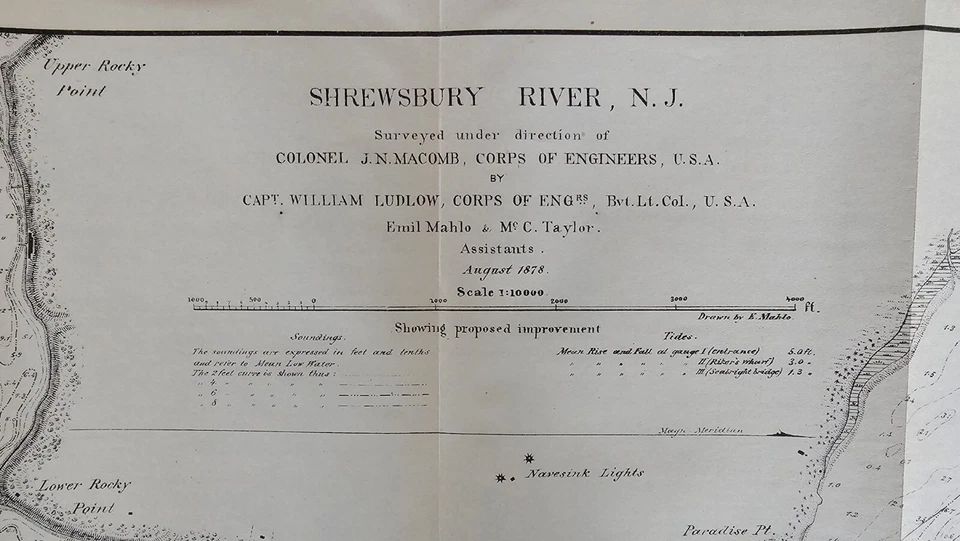 Upper Rocky
Point
SHREWSBURY RIVER, N. J.
Surveyed under direction of
COLONEL J. N. MACOMB, CORPS OF ENGINEERS, U.S.A.
BY
CAPT. WILLIAM LUDLOW, CORPS OF ENGRS, Bvt. Lt. Col., U. S. A.
Emil Mahlo & Mc C. Taylor.
Assistants.
August 1878.
Scale 1:10000.
1000 500 0 1000 2000 3000 4000 ft.
Drawn by E. Mahlo.
Showing proposed improvement
Soundings.
The soundings are expressed in feet and tenths
and refer to Mean Low Water.
The 2 feet curve is shown thus:
" 4 " " " " "
" 6 " " " " "
" 8 " " " " "
Tides.
Mean Rise and Fall at gauge I (entrance) 5.0 ft.
" " " " " " II (Riker's wharf) 3.0 "
" " " " " " III (Seabright bridge) 1.3 "
Magn. Meridian
Navesink Lights
Lower Rocky
Point
Paradise Pt.